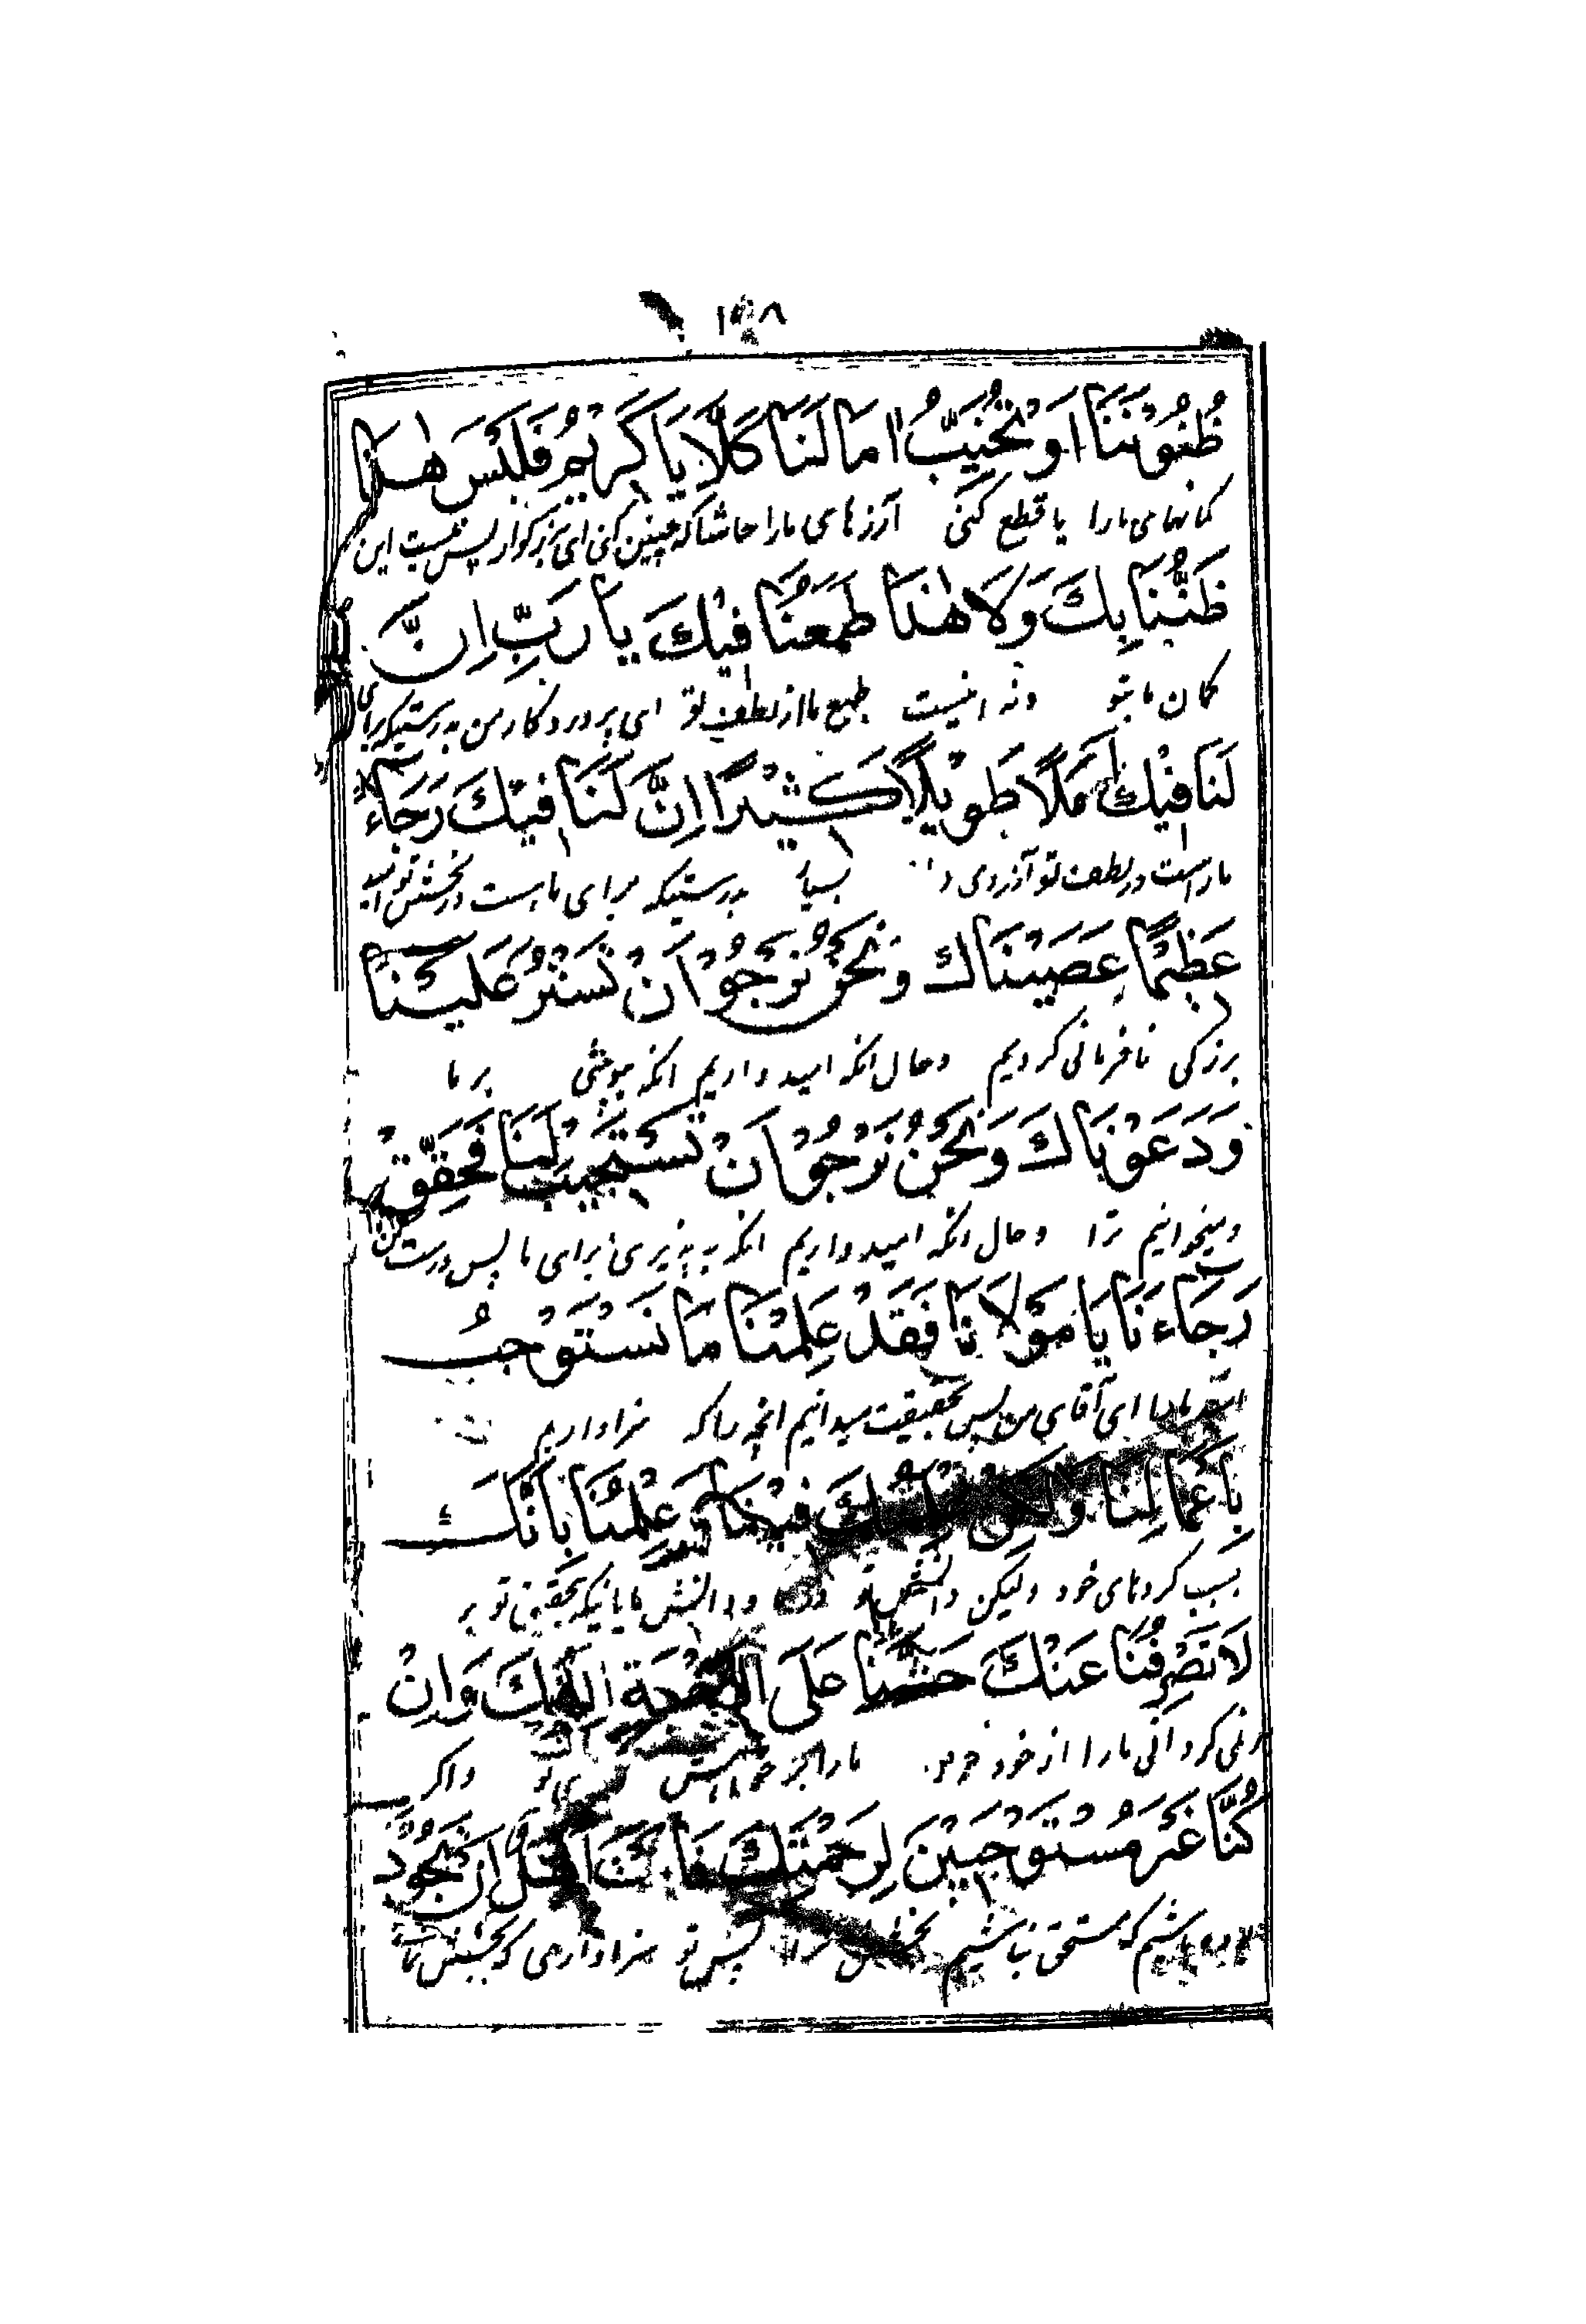 ظُنُوْنَنَا اَوْ تُخَيِّبُ اٰمَالَنَا كَلَّا يَا كَرِيْمُ فَلَيْسَ هٰذَا
كمانهای مارا یا قطع کنی آرزهای مارا حاشا که چنین کنی ای بزرگوار پس نیست این
ظَنُّنَا بِكَ وَلَا هٰذَا طَمَعُنَا فِيْكَ يَا رَبِّ اِنَّ
کمان ما بتو ونه اینست طمع ما از لطف تو ای پروردگار من بدرستیکه برای
لَنَا فِيْكَ اَمَلًا طَوِيْلًا كَثِيْرًا اِنَّ لَنَا فِيْكَ رَجَاءً
ماراست در لطف تو آرزوی بسیار بدرستیکه برای ما هست در بخشش تو امید
عَظِيْمًا عَصَيْنَاكَ وَنَحْنُ نَرْجُوْ اَنْ تَسْتُرَ عَلَيْنَا
بزرگی نافرمانی کردیم وحال انکه امید داریم انکه بپوشی بر ما
وَدَعَوْنَاكَ وَنَحْنُ نَرْجُوْ اَنْ تَسْتَجِيْبَ لَنَا فَحَقِّقْ
ومیخوانیم ترا وحال انکه امید داریم انکه به پذیری برای ما پس درست کن
رَجَاءَنَا يَا مَوْلَانَا فَقَدْ عَلِمْنَا مَا نَسْتَوْجِبُ
امید مارا ای آقای من پس بحقیقت میدانیم انچه را که سزاواریم
بِاَعْمَالِنَا وَلٰكِنْ عِلْمُكَ فِيْنَا وَعِلْمُنَا بِاَنَّكَ
بسبب کردهای خود ولیکن دانش تو در ما ودانش ما باینکه بحقیق تو بر
لَا تَصْرِفُنَا عَنْكَ حَثَّنَا عَلَى الرَّغْبَةِ اِلَيْكَ وَاِنْ
نمی گردانی مارا از خود مارا بر خواهش تو واگر
كُنَّا غَيْرَ مُسْتَوْجِبِيْنَ لِرَحْمَتِكَ فَاَنْتَ اَهْلٌ اَنْ تَجُوْدَ
باشیم که مستحق نباشیم پس تو سزاواری که بخشش